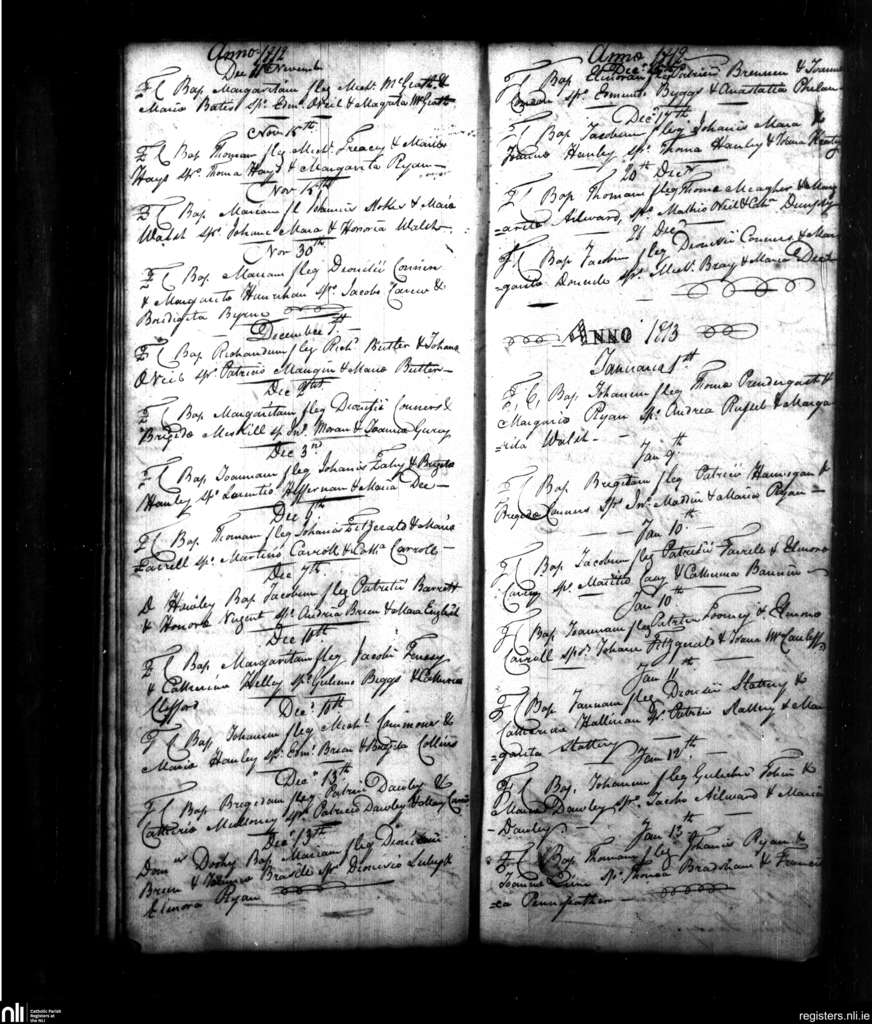 Anno 1812
November
F C Bap Margaritam f leg Michl McGrath &
Maria Bates Sprs Edmd ONeil & Magrita McGrath
Nov 15th
F C Bap Thomam f leg Michl Treacy & Maria
Hays Sprs Thoma Hays & Margarita Ryan
Nov 15th
F C Bap Mariam fl Johannis & Maria
Walsh Sprs Johane Mara & Honoria Walsh
Nov 30th
F C Bap Mariam f leg Dionisii
& Margarita Hanrahan Sprs Jacobo Carew &
Bridigita Byrne
December 1th
F C Bap Richardum f leg Richd Butler & Johana
ONeil sprs Patricio Mangin & Maria Butler
Dec 2nd
F C Bap Margaritam f leg Dionisii Conners &
Brigida Meskill sp Jno Moran & Joanna
Dec 3rd
F C Bap Joannam f leg Johanis Fahy & Brigida
Hanley Sprs Laurentio Heffernan & Maria Dee
Dec 5th
F C Bap Thomam f leg Johanis Fitzgerald & Maria
Farrell sprs Martino Carroll & Carroll
Dec 7th
D Henley Bap Jacobum f leg Patritii Barrett
& Honora Nugent Sprs Andria Brien & Mara English
Dec 10th
F C Bap Margaritam f leg Jacobi
& Catherina Kelley sprs Gulielmo Biggs & Catherina
Clifford
Decr 10th
F C Bap Johanem f leg Michl Commons &
Maria Hanley sprs Edmd Brien & Brigida Collins
Decr 13th
F C Bap Brigidam f leg Patricii Dawley &
Catherio Mullowney sprs Patricio Dawley & Mary
Decr 13th
Domns Bap Mariam f leg Dionisii
Brien & Brasile Sprs Dionisio
Elinora Ryan
Anno 1812
Decr
F C Bap Elinoram f leg Patricii Brennen & Joanna
Sprs Edmundo Biggs & Anastatia Phelan
Decr 17th
F C Bap Jacobum f leg Johanis Mara &
Joanna Hanley sprs Thoma Hanley & Joana
20th Decr
F C Bap Thomam f leg Thoma Meagher & Marg
arita Ailward, Sprs Mathio Neil &
26 Dec
F C Bap Jacobum f leg Dionisii Conners & Mar
garita sprs Michl Bray & Maria Dee
ANNO 1813
Januarius 1th
F, C, Bap Johanem f leg Thoma Prendergast &
Margario Ryan Sprs Andrea Russel & Marga
rita Walsh
Jan 9th
F C Bap Brigidam f leg Patricii Hannigan &
Brigida Conners Sprs Jno Madden & Maria Ryan
Jan 10th
F C Bap Jacobum f leg Patritii Farrell & Elinora
Carey sprs Mauritio Casey & Catherina
Jan 10th
F C Bap Joannam f leg Patricii Looney & Elinora
Carroll sprs Johane Fitzgerald & Joana McCauliffe
Jan 11th
F C Bap Joannam f leg Dionisii Slattery &
Catherina Hallinan Sprs Patricio & Mar
garita Slattery
Jan 12th
F C Bap, Johanem f leg Gulielmi Tobin &
Maria Dawley Sprs Jacobo Ailward & Maria
Dawley
Jan 13th
F C Bap Thomam f leg Johanis Ryan &
Joanna Sprs Thomoa Bradshaw & Francis
ca Pennefather
nli
Catholic Parish
Registers at
the NLI
registers.nli.ie